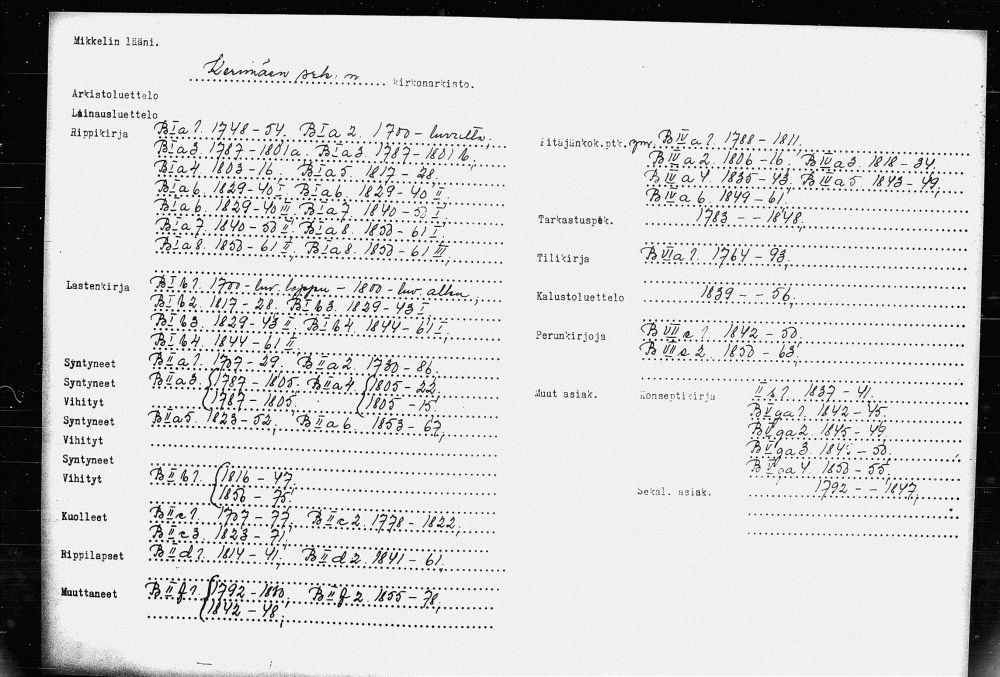 Mikkelin lääni.
Kermäen srk:n kirkonarkisto.
Arkistoluettelo
Lainausluettelo
Rippikirja B I a 1. 1748-54. B I a 2. 1700-luvulta,
B I a 3. 1787-1801 a. B I a 3. 1787-1801 b,
B I a 4. 1803-16, B I a 5. 1817-28.
B I a 6. 1829-40 I, B I a 6. 1829-40 II.
B I a 6. 1829-40 III. B I a 7. 1840-50 I,
B I a 7. 1840-50 II, B I a 8. 1850-61 I,
B I a 8. 1850-61 II, B I a 8. 1850-61 III,
Lastenkirja B I b 1. 1700-luv. loppu - 1800-luv. alku,
B I b 2. 1817-28. B I b 3. 1829-43 I
B I b 3. 1829-43 II. B I b 4. 1844-61 I,
B I b 4. 1844-61 II.
Syntyneet B II a 1. 1707-29. B II a 2. 1730-86.
Syntyneet B II a 3. {1787-1805. B II a 4. {1805-22,
Vihityt {1787-1805, {1805-15,
Syntyneet B II a 5. 1823-52, B II a 6. 1853-67,
Vihityt
Syntyneet
Vihityt B II b 1. {1816-47.
{1850-75.
Kuolleet B II c 1. 1707-77, B II c 2. 1778-1822,
B II c 3. 1823-71,
Rippilapset B II d 1. 1814-41, B II d 2. 1841-61,
Muuttaneet B II f 1. {1792-1880, B II f 2. 1855-78,
{1842-48,
Pitäjänkok.ptk. ym. B IV a 1. 1788-1811,
B IV a 2. 1806-16, B IV a 3. 1818-34.
B IV a 4. 1835-43, B IV a 5. 1843-49,
B IV a 6. 1849-61.
Tarkastuspök. 1783 - - 1848,
Tilikirja B VII a 1. 1764-93,
Kalustoluettelo 1839 - - 56.
Perunkirjoja B VII e 1. 1842-50.
B VII e 2. 1850-63,
Muut asiak. Konseptikirja 1837-41.
B V ga 1. 1842-45.
B V ga 2. 1845-49,
B V ga 3. 50.
B V ga 4. 1850-55,
Sekal. asiak. 1792 - - 1847,